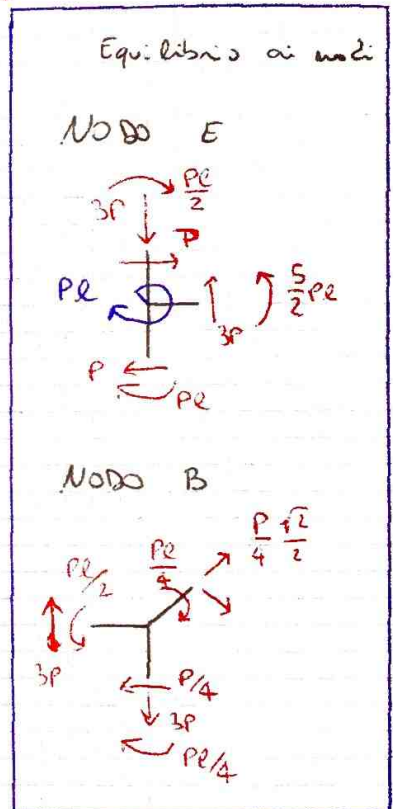 Equilibrio ai nodi
NODO E
Pl/2
3P
P
Pl
3P
5/2 Pl
P
Pl
NODO B
P/4 √2/2
Pl/4
Pl/2
3P
P/4
3P
Pl/4